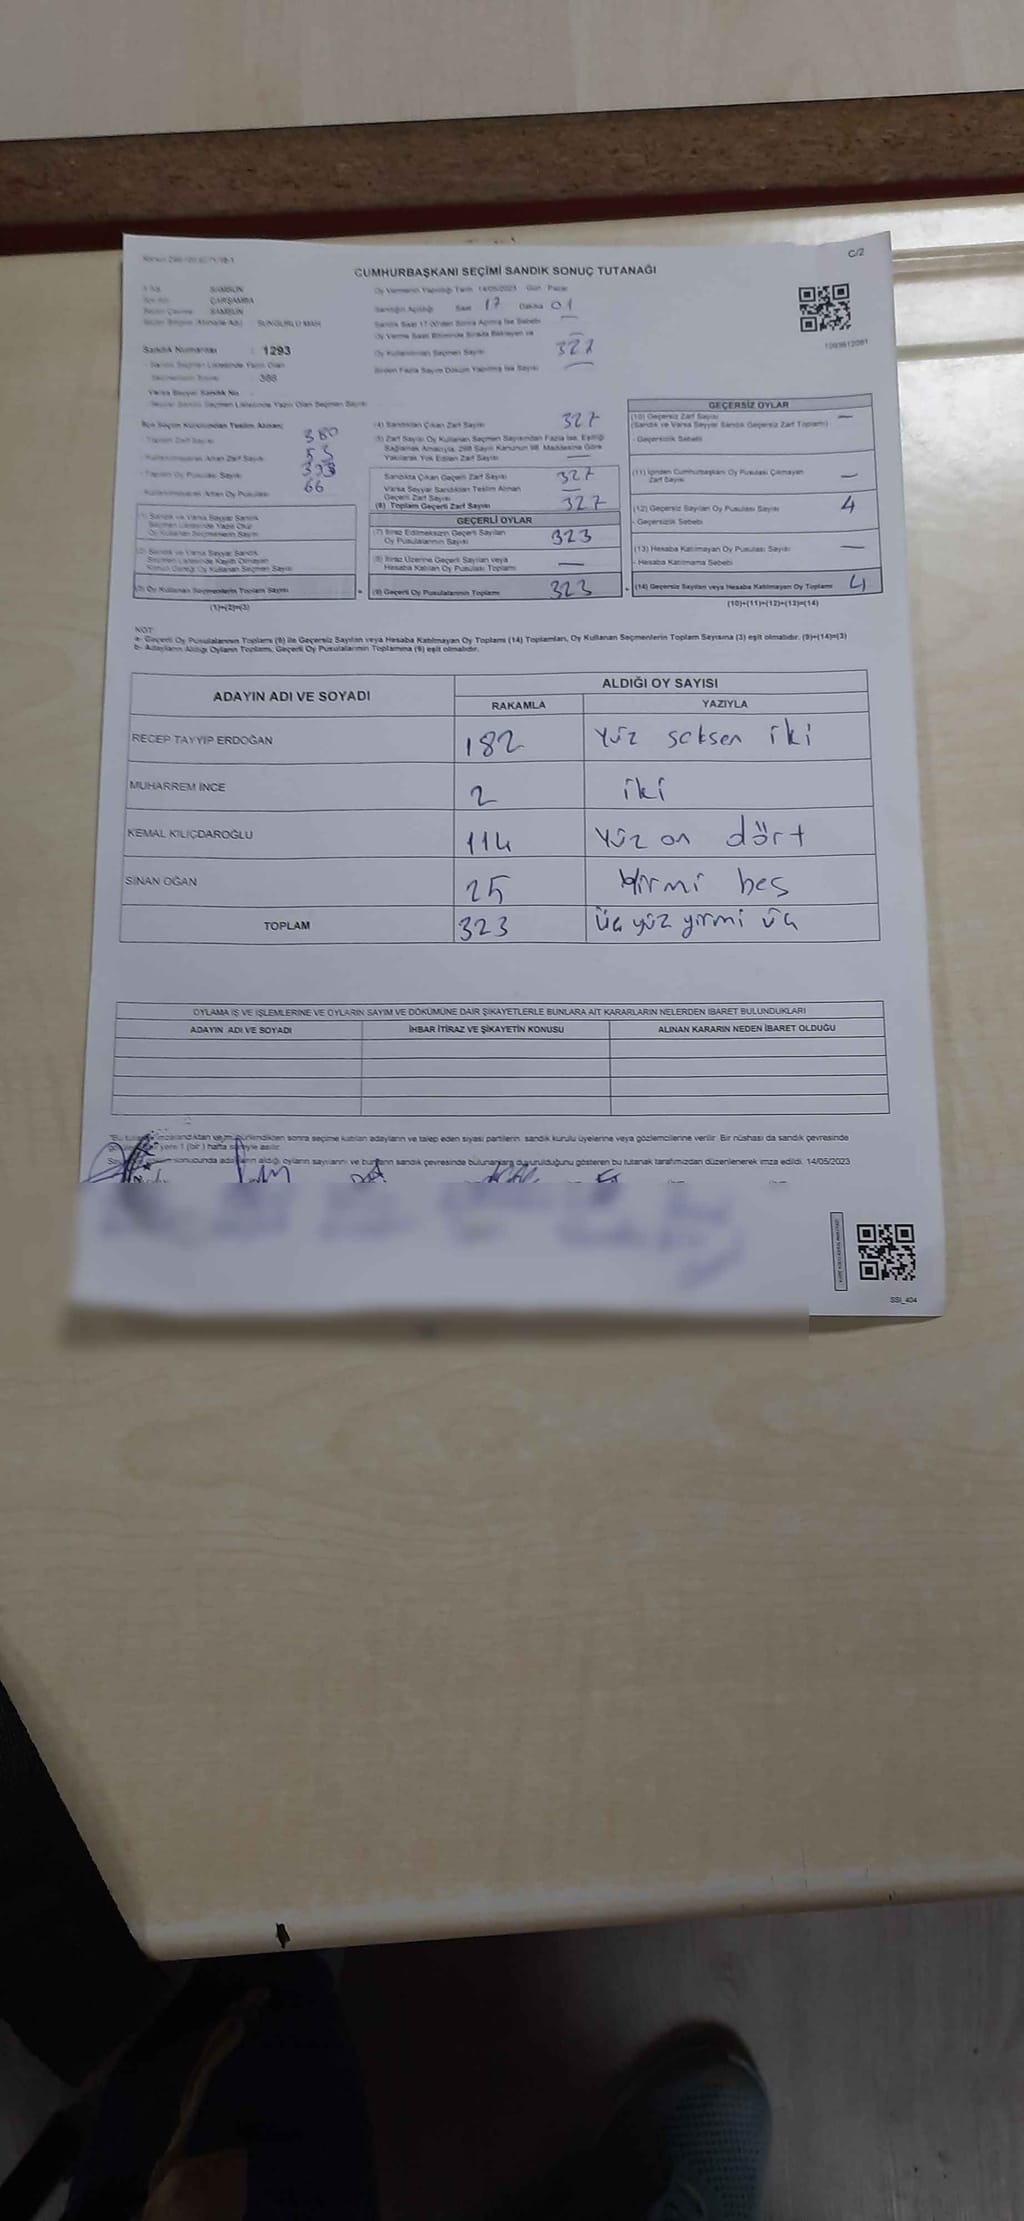 C/2
CUMHURBAŞKANI SEÇİMİ SANDIK SONUÇ TUTANAĞI
SAMSUN
ÇARŞAMBA
SAMSUN
SUNGURLU MAH
Oy Vermenin Yapıldığı Tarih 14/05/2023 Gün Pazar
Sandığın Açıldığı Saat 17 Dakika 01
Sandık Saat 17:00'den Sonra Açılmış İse Sebebi —
Oy Verme Saati Bitiminde Sırada Bekleyen ve —
Oy Kullandırılan Seçmen Sayısı 327
Birden Fazla Sayım Döküm Yapılmış İse Sayısı —
Sandık Numarası : 1293
Sandık Seçmen Listesinde Yazılı Olan
Seçmenlerin Sayısı : 388
Varsa Seyyar Sandık No
Seyyar Sandık Seçmen Listesinde Yazılı Olan Seçmen Sayısı
İlçe Seçim Kurulundan Teslim Alınan;
Toplam Zarf Sayısı 380
Kullanılmayarak Artan Zarf Sayısı 53
Toplam Oy Pusulası Sayısı 393
Kullanılmayarak Artan Oy Pusulası 66
(1) Sandık ve Varsa Seyyar Sandık
Seçmen Listesinde Yazılı Olup
Oy Kullanan Seçmenlerin Sayısı
(2) Sandık ve Varsa Seyyar Sandık
Seçmen Listesinde Kayıtlı Olmayan
Kanun Gereği Oy Kullanan Seçmen Sayısı
(3) Oy Kullanan Seçmenlerin Toplam Sayısı
(1)+(2)=(3)
(4) Sandıktan Çıkan Zarf Sayısı 327
(5) Zarf Sayısı Oy Kullanan Seçmen Sayısından Fazla İse, Eşitliği
Sağlamak Amacıyla, 298 Sayılı Kanunun 98. Maddesine Göre
Yakılarak Yok Edilen Zarf Sayısı —
Sandıkta Çıkan Geçerli Zarf Sayısı 327
Varsa Seyyar Sandıktan Teslim Alınan
Geçerli Zarf Sayısı —
(6) Toplam Geçerli Zarf Sayısı 327
GEÇERLİ OYLAR
(7) İtiraz Edilmeksizin Geçerli Sayılan
Oy Pusulalarının Sayısı 323
(8) İtiraz Üzerine Geçerli Sayılan veya
Hesaba Katılan Oy Pusulası Toplamı —
(9) Geçerli Oy Pusulalarının Toplamı 323
GEÇERSİZ OYLAR
(10) Geçersiz Zarf Sayısı —
(Sandık ve Varsa Seyyar Sandık Geçersiz Zarf Toplamı)
- Geçersizlik Sebebi
(11) İçinden Cumhurbaşkanı Oy Pusulası Çıkmayan
Zarf Sayısı —
(12) Geçersiz Sayılan Oy Pusulası Sayısı 4
- Geçersizlik Sebebi
(13) Hesaba Katılmayan Oy Pusulası Sayısı —
- Hesaba Katılmama Sebebi
(14) Geçersiz Sayılan veya Hesaba Katılmayan Oy Toplamı 4
(10)+(11)+(12)+(13)=(14)
NOT:
a- Geçerli Oy Pusulalarının Toplamı (9) ile Geçersiz Sayılan veya Hesaba Katılmayan Oy Toplamı (14) Toplamları, Oy Kullanan Seçmenlerin Toplam Sayısına (3) eşit olmalıdır. (9)+(14)=(3)
b- Adayların Aldığı Oyların Toplamı, Geçerli Oy Pusulalarının Toplamına (9) eşit olmalıdır.
ADAYIN ADI VE SOYADI ALDIĞI OY SAYISI
RAKAMLA YAZIYLA
RECEP TAYYİP ERDOĞAN 182 Yüz seksen iki
MUHARREM İNCE 2 iki
KEMAL KILIÇDAROĞLU 114 Yüz on dört
SİNAN OĞAN 25 yirmi beş
TOPLAM 323 üç yüz yirmi üç
OYLAMA İŞ VE İŞLEMLERİNE VE OYLARIN SAYIM VE DÖKÜMÜNE DAİR ŞİKAYETLERLE BUNLARA AİT KARARLARIN NELERDEN İBARET BULUNDUKLARI
ADAYIN ADI VE SOYADI İHBAR İTİRAZ VE ŞİKAYETİN KONUSU ALINAN KARARIN NEDEN İBARET OLDUĞU
sonra seçime katılan adayların ve talep eden siyasi partilerin sandık kurulu üyelerine veya gözlemcilerine verilir. Bir nüshası da sandık çevresinde
yere 1 (bir) hafta süreyle asılır.
sonucunda adayların aldığı oyların sayılarını ve bunların sandık çevresinde bulunanlara duyurulduğunu gösteren bu tutanak tarafımızdan düzenlenerek imza edildi. 14/05/2023
SSI_404